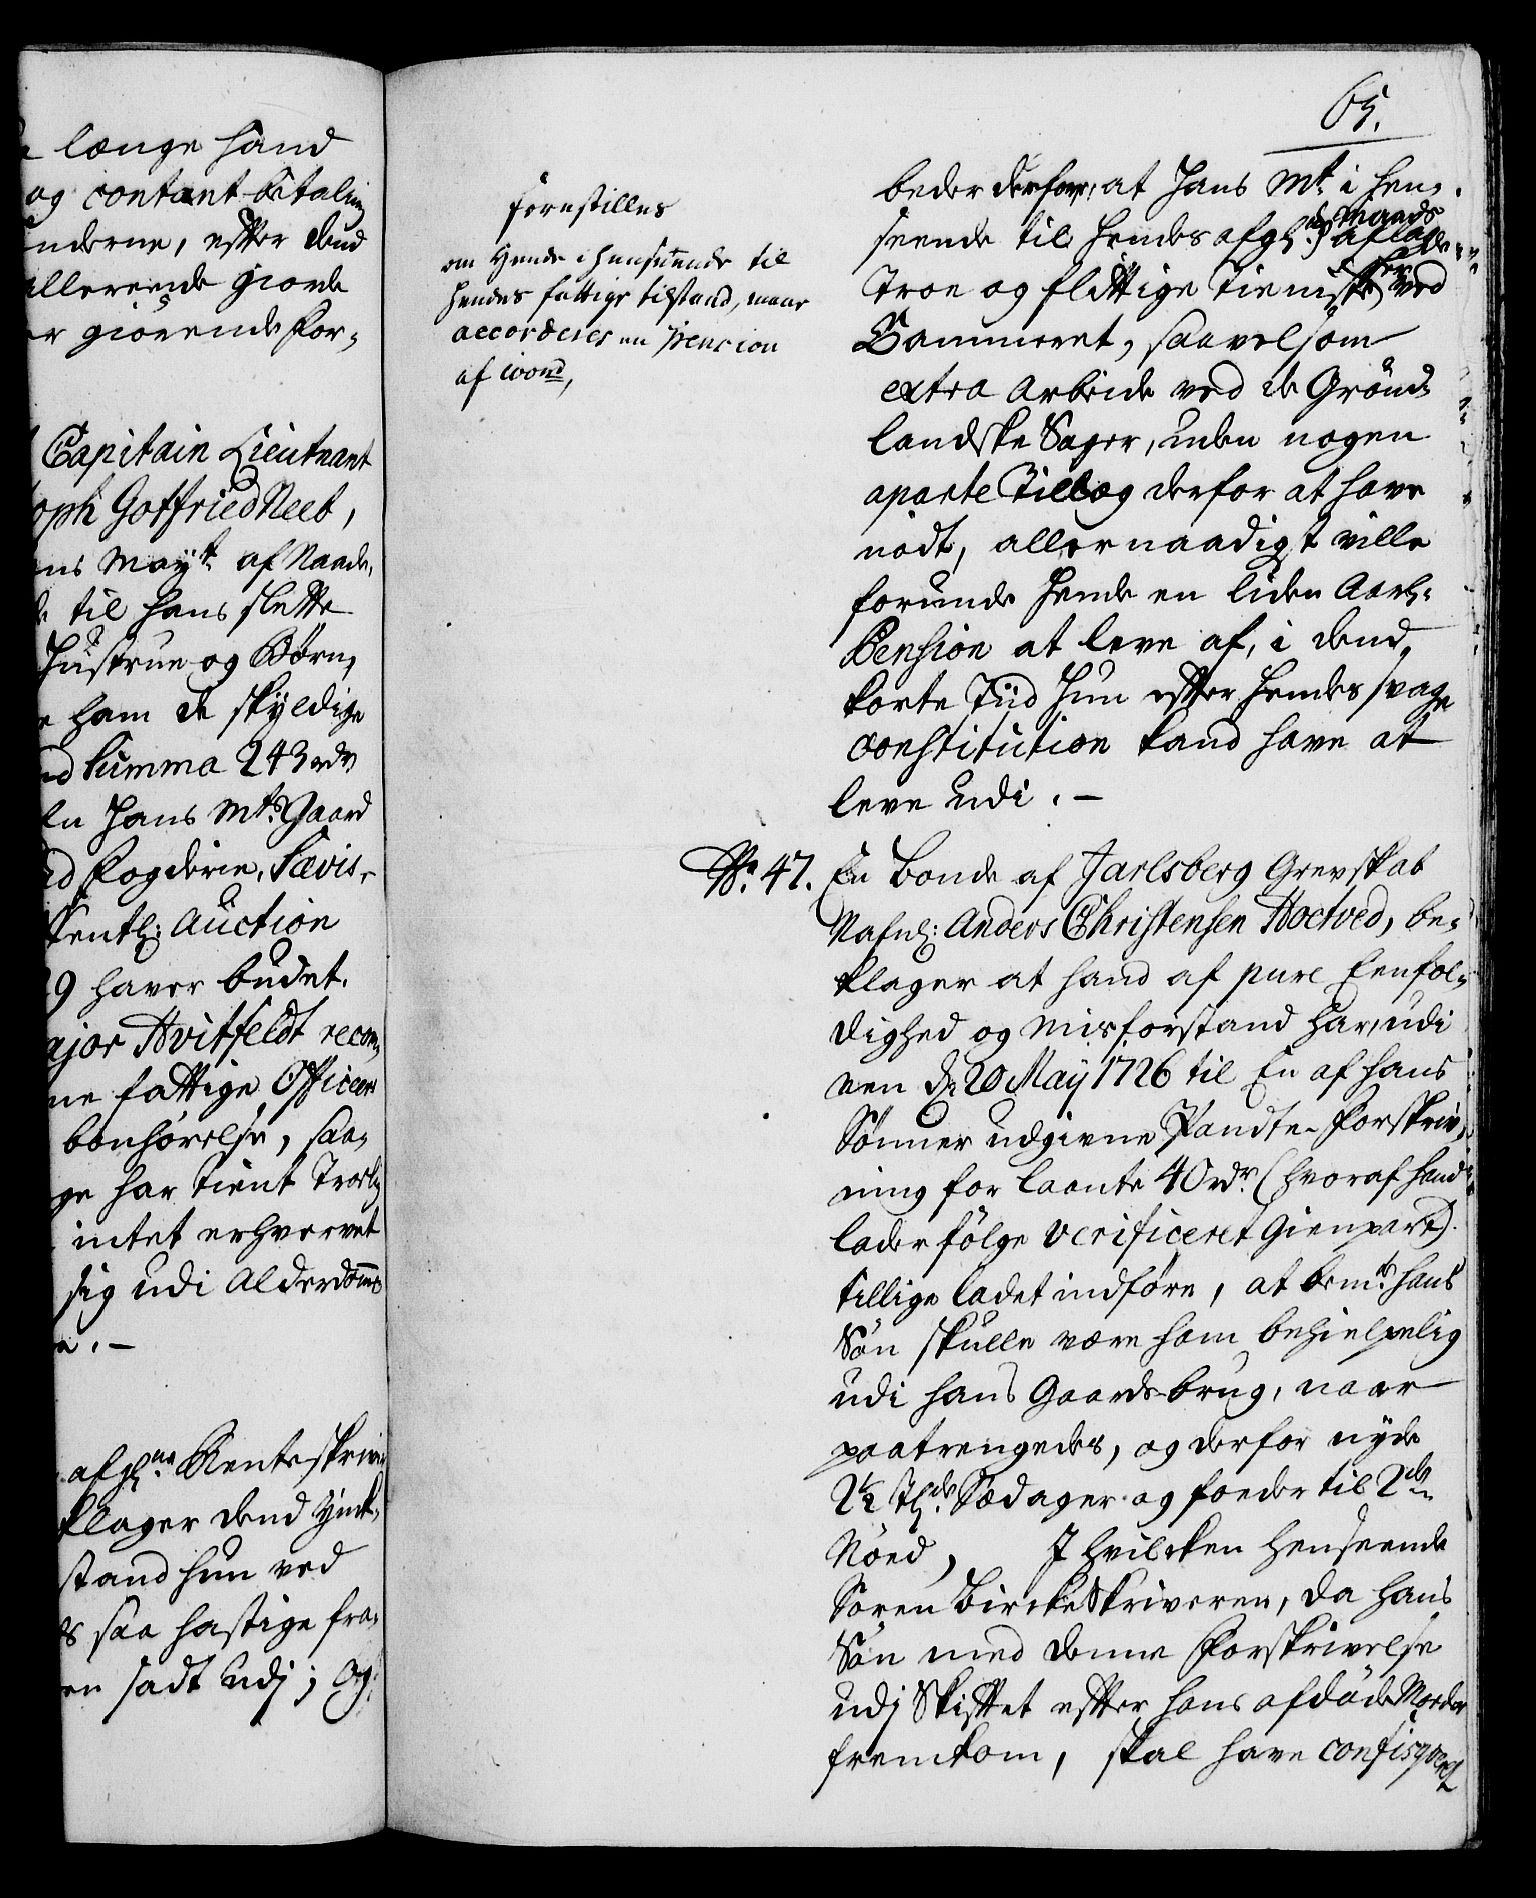 længe hand
og contant betaling
nderne, efter dend
allereede giorde
giörende For-
Capitain Lieutnant
oph Gotfried Neeb,
ns May.t af Naade,
til hans slette
Hustrue og Børn,
ham de skyldige
Summa 243 rdr
Hans Mt.s Gaard
Fogderie, Sævis-
entl: Auction
9 haver budet.
ajor Hvitfeldt recom-
ne fattige Officeer
bønhørelse, saa-
ge har tient Troelig
intet erhvervet
sig udi Alderdomme
afg.ne Renteskriv
klager dend Ynk-
stand hun ved
s saa hastige fra-
en sadt udj; Og
65.
forestilles
om Hende i henseende til
hendes fattige tilstand, maae
accorderes en Pension
af 100 rd,
beder derfore, at Hans Mt. i hen-
seende til hendes afg: Mands
Troe og flittige Tieniste ved
Cammeret, saavelsom
extra Arbeide ved de Grön-
landske Sager, uden nogen
aparte Tillæg derfor at have
nödt, allernaadigst ville
forunde hende en liden Aarl:
Pension at leve af, i dend
korte Tiid hun efter hendes svage
constitution kand have at
leve udi. —
No. 47. En Bonde af Jarlsberg Grevskab
Nafnl: Anders Christensen Hoctved, be-
klager at hand af pure Eenfol-
dighed og Misforstand har, udi
een dn 20 Maij 1726 til En af hans
Sönner udgivne Pandte-Forskriv-
ning for laante 40 rdr. (hvoraf hand
lader fölge verificeret Gienpart)
tillige ladet indföre, at bem.te hans
Sön skulle være ham behielpelig
udi hans Gaards-brug, naar
paatrengedes, og derfor nyde
2½ Sædager og foeder til 2de
Nöed, J hvilcken Henseende
Soren Skriveren, da hans
Sön med denne Forskrivelse
udj Skiftet efter hans afdöde Moder
fremkom, skal have confisqveret